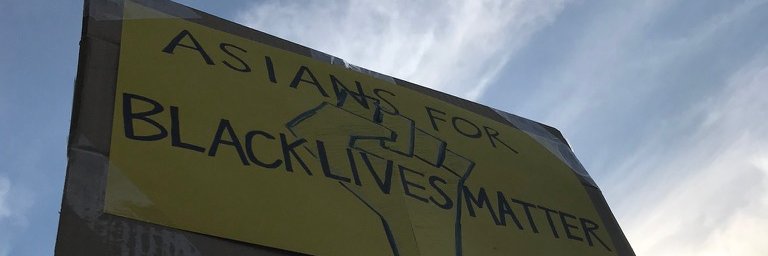 ASIANS FOR
BLACK LIVES MATTER